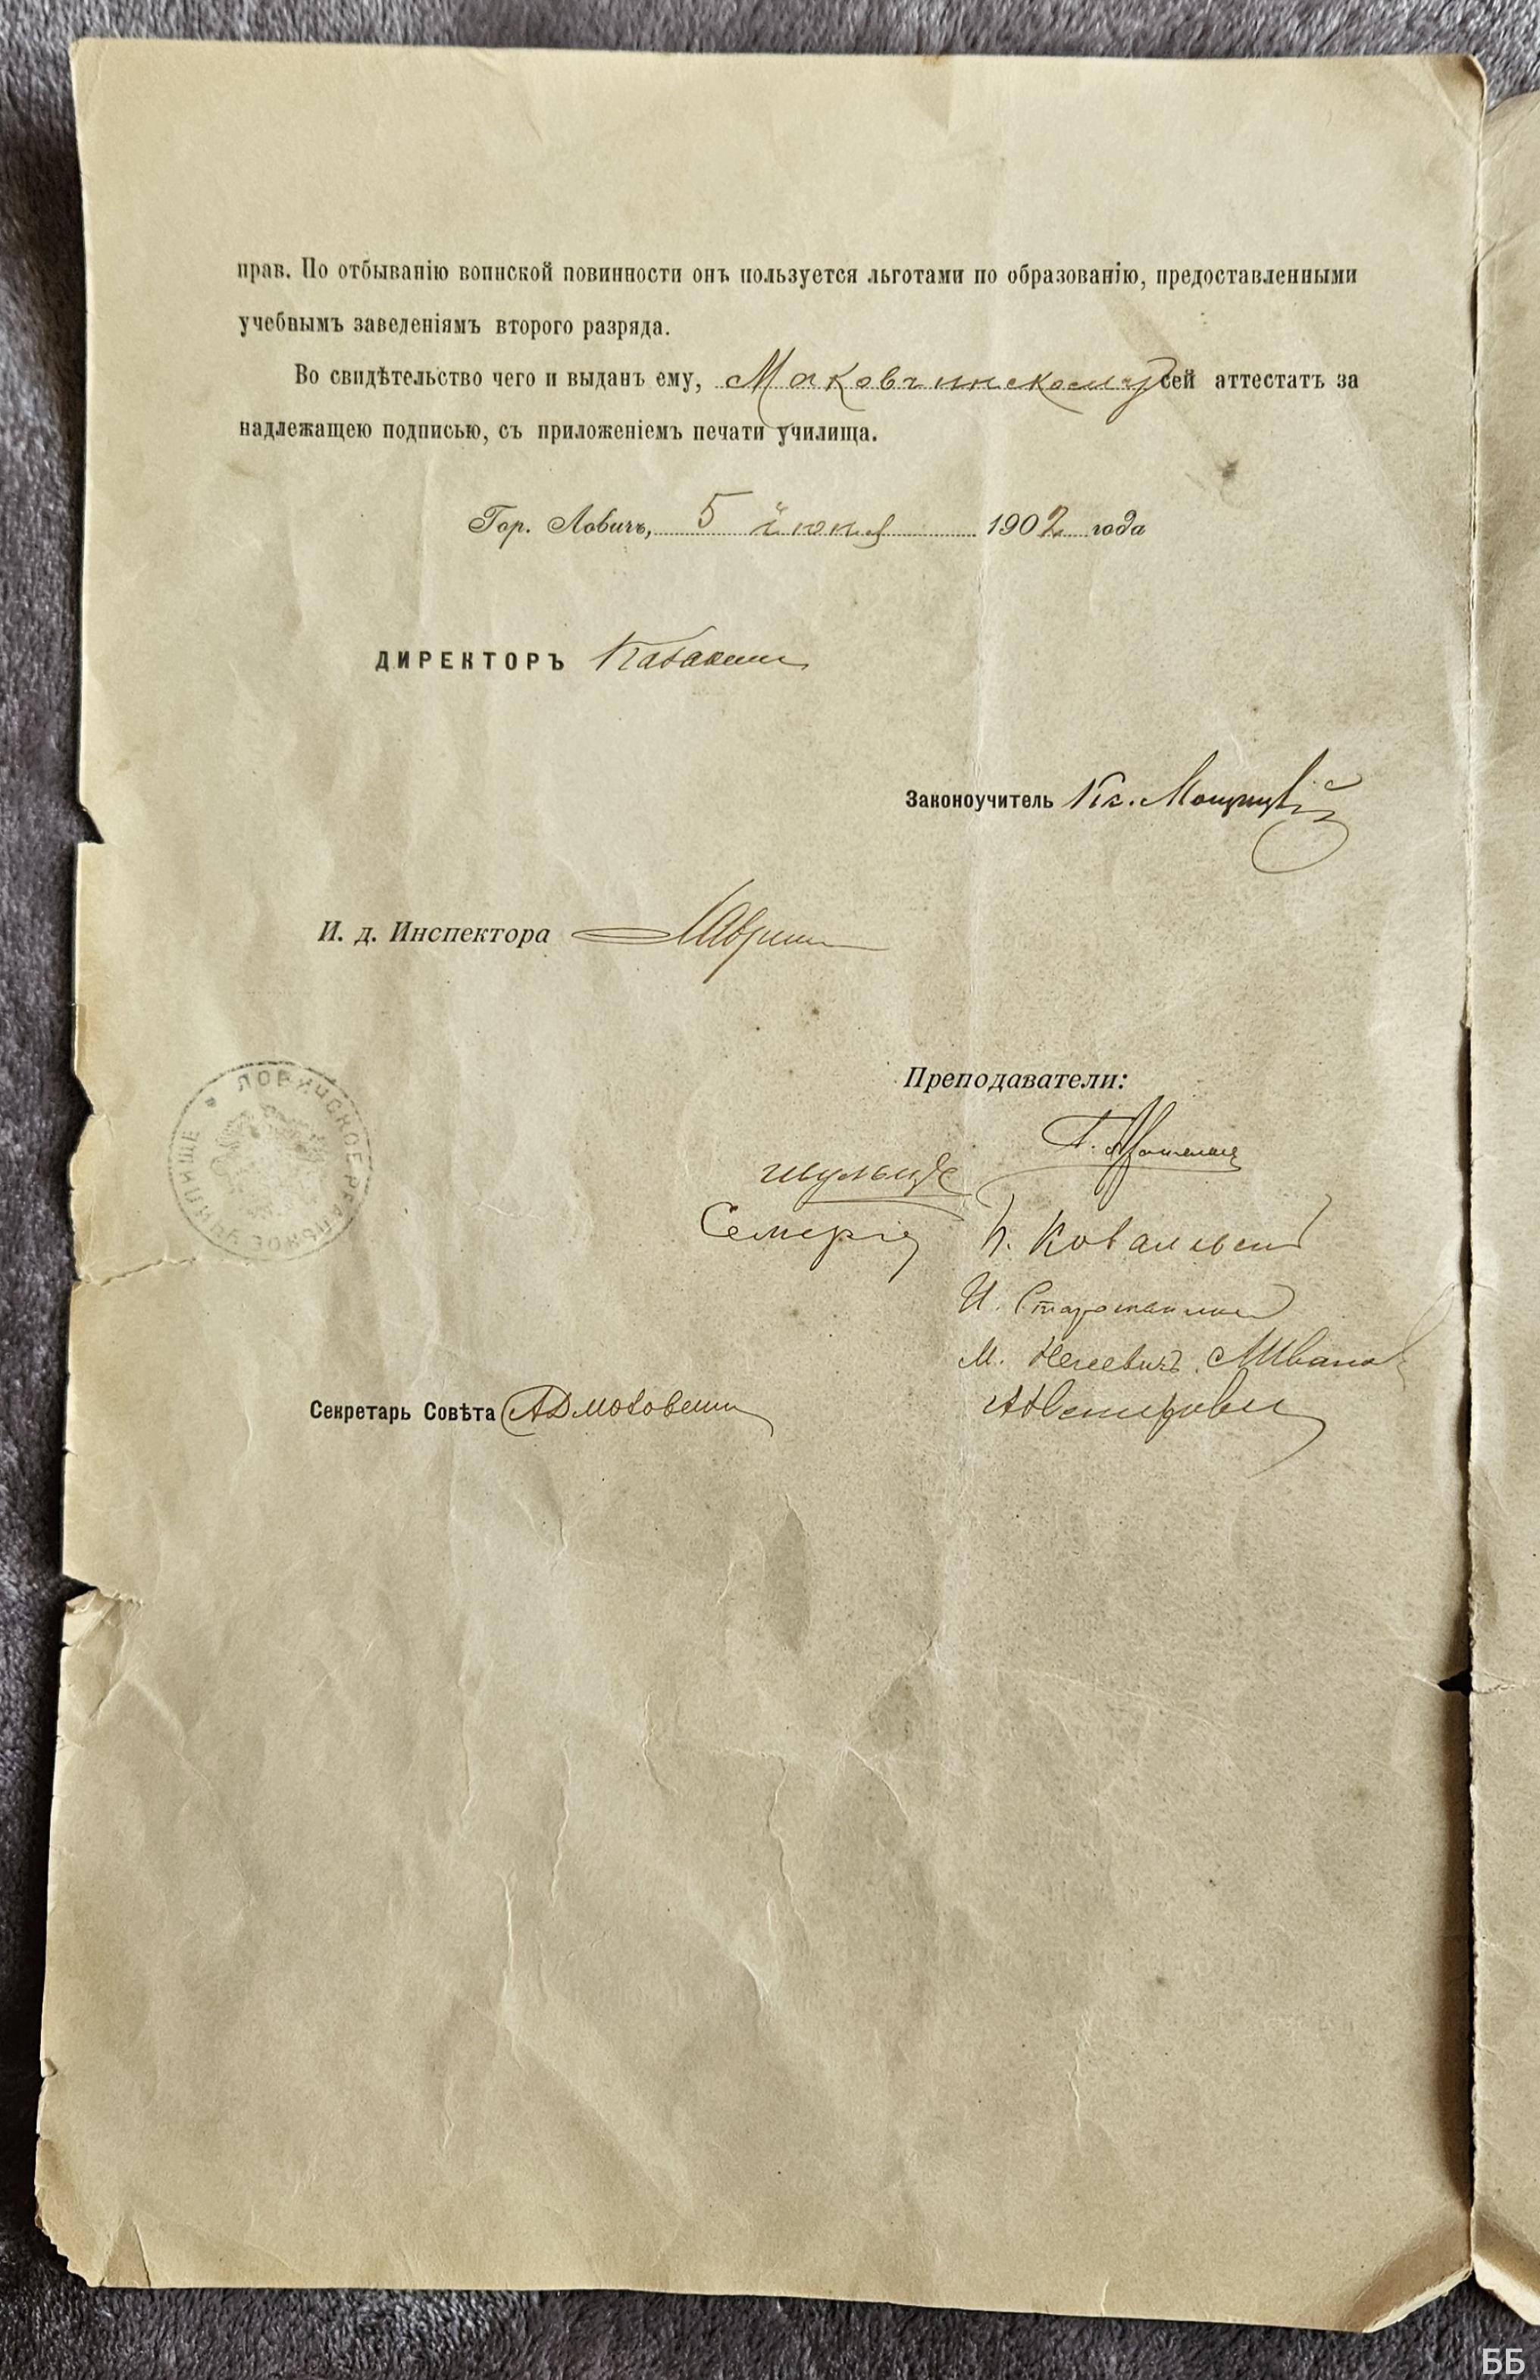 прав. По отбыванію воинской повинности онъ пользуется льготами по образованію, предоставленными
учебнымъ заведеніямъ второго разряда.
Во свидѣтельство чего и выданъ ему, Маковчинскому сей аттестатъ за
надлежащею подписью, съ приложеніемъ печати училища.
Гор. Ловичъ, 5 іюня 1902 года
ДИРЕКТОРЪ
Законоучитель Кс.
И. д. Инспектора
ЛОВИЧСКОЕ РЕАЛЬНОЕ УЧИЛИЩЕ
Преподаватели:
Шульце
В. Ковальскій
И.
М.
Секретарь Совѣта
ББ